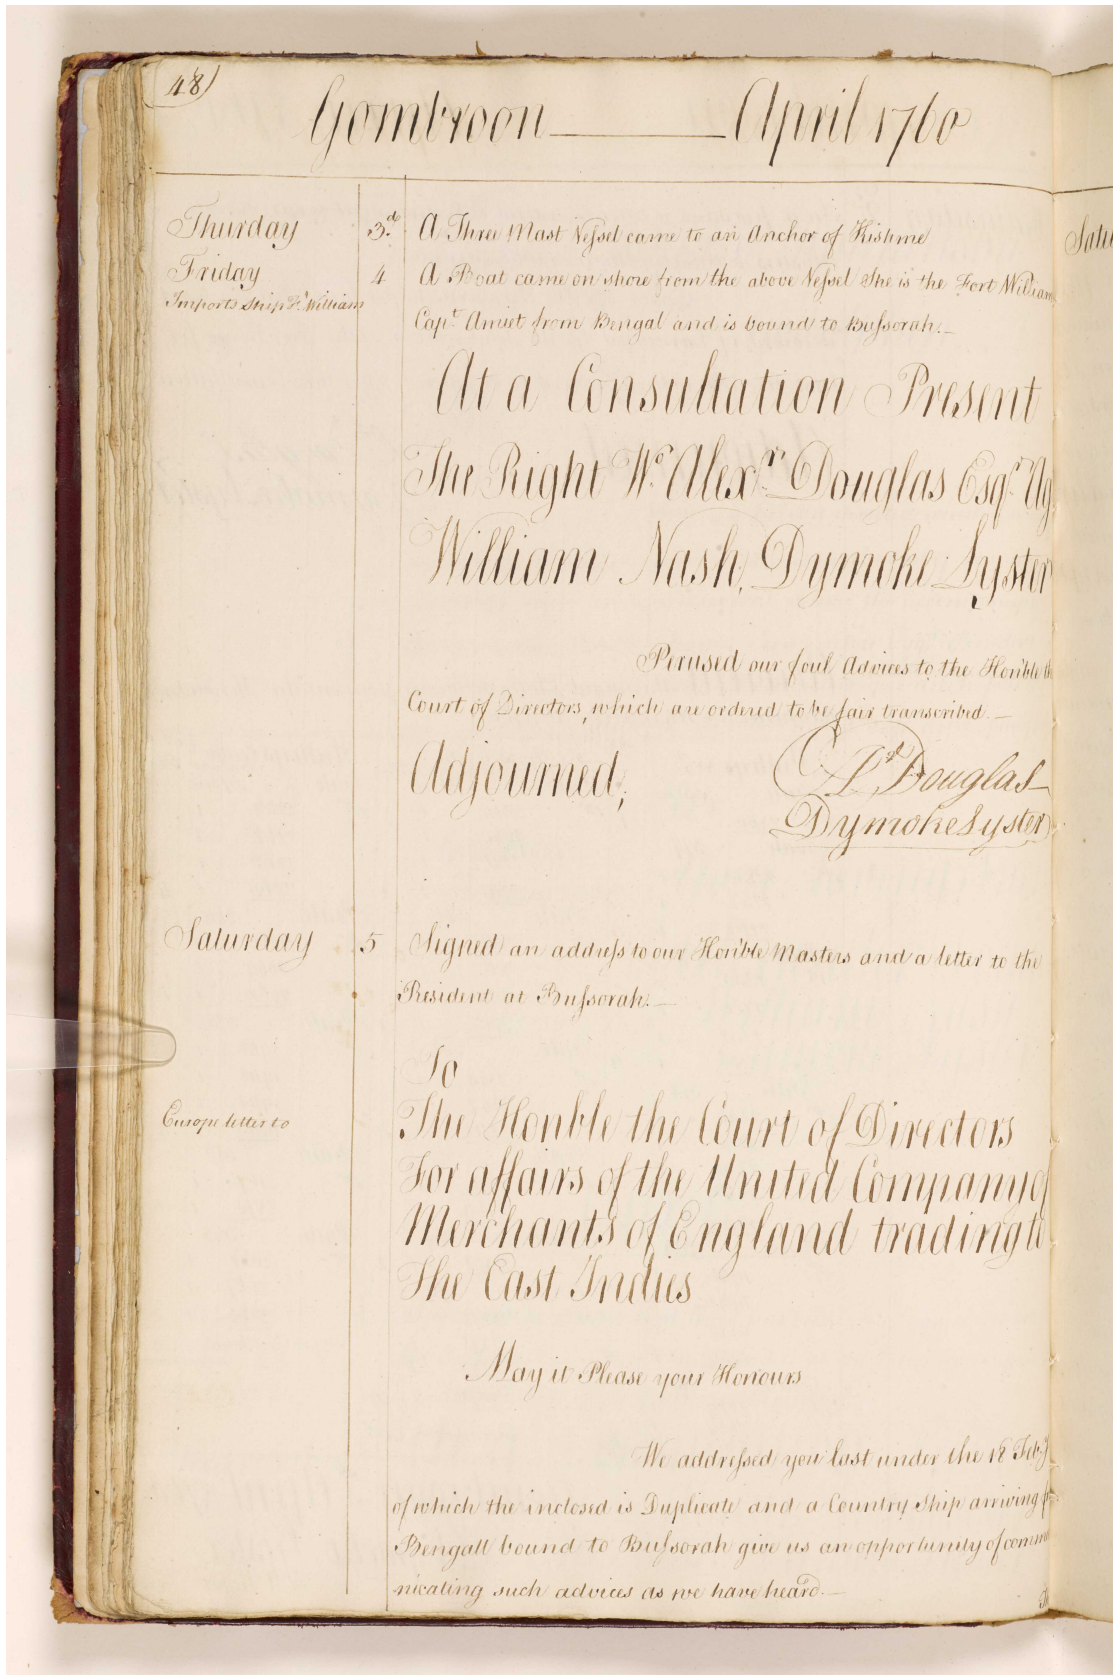 48)
Gombroon April 1760
Thurday 3.d A Three Mast Vessel came to an Anchor of Kishme
Friday 4 A Boat came on shore from the above Vessel She is the Fort William
Imports Ship Ft William
Capt. Amiet from Bengal and is bound to Bussorah._
At a Consultation Present
The Right Wo. Alexr. Douglas Esqr. Ag
William Nash, Dymoke Lyster
Perused our foul Advices to the Honble the
Court of Directors, which are ordered to be fair transcribed._
Adjourned, Douglas
Dymoke Lyster
Saturday 5 Signed an address to our Honble Masters and a letter to the
President at Bussorah._
To
Europe letter to
The Honble the Court of Directors
For affairs of the United Company of
Merchants of England trading to
The East Indies
May it Please your Honours
We addressed you last under the 18 Feby
of which the inclosed is Duplicate and a Country Ship arriving
Bengall bound to Bussorah give us an opportunity of commu
nicating such advices as we have heard._
Satu